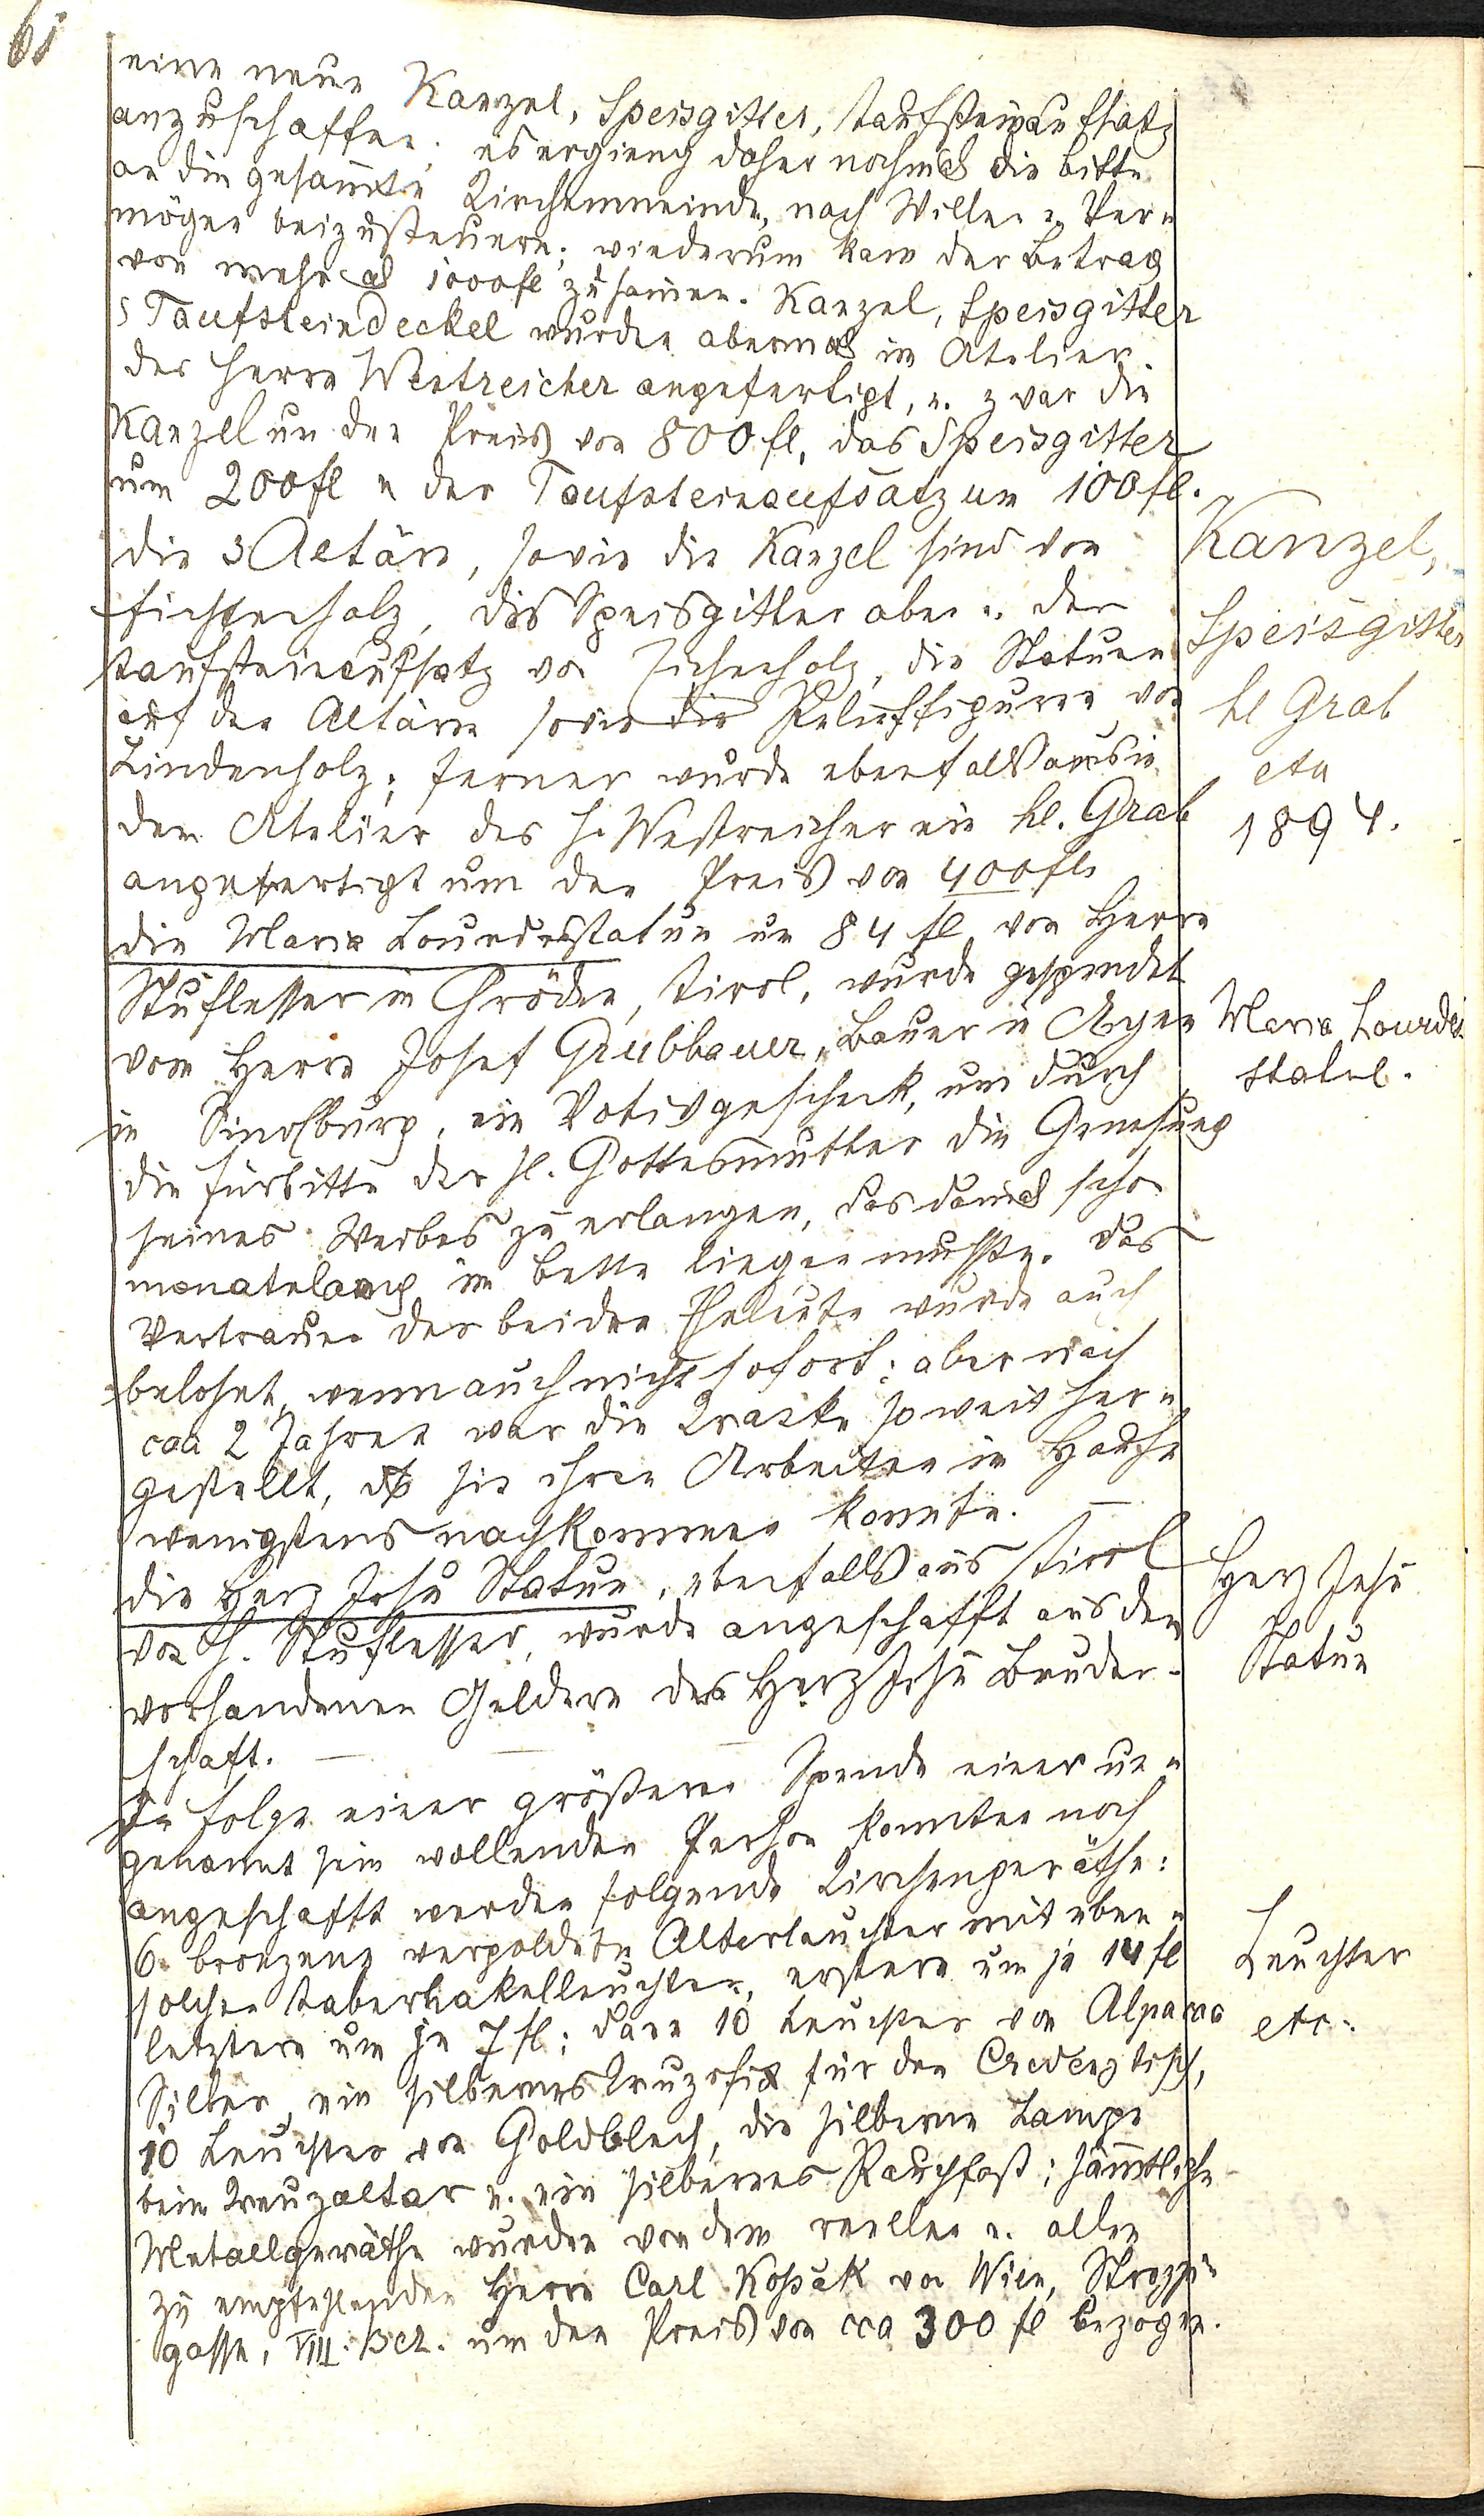 61
eine neue Kanzel, Speisgitter, Taufsteinaufsatz
anzuschaffen; es ergieng daher nochmals die Bitte
an die gesam̄te Kirchengemeinde, nach Willen u. Ver=
mögen beizusteuern; wiederum kam der Betrag
von mehr als 1000 fl zusam̄en. Kanzel, Speisgitter
Taufsteindeckel wurden abermals im Atelier
des Herrn Westreicher angefertigt, u. zwar die
Kanzel um den Preis von 800 fl, das Speisgitter
um 200 fl u der Taufsteinaufsatz um 100 fl.
die 3 Altäre, sowie die Kanzel sind von
Fichtenholz, das Speisgitter aber u. der
Taufsteinaufsatz von Eichenholz, die Statuen
auf den Altären sowie die Relieffiguren von
Lindenholz; ferner wurde ebenfalls aus in
dem Atelier des H. Westreicher ein hl. Grab
angefertigt um den Preis von 400 fl.
die Maria Lourdesstatue um 84 fl von Herrn
Stuflesser in Gröden, Tirol, wurde gespendet
vom Herrn Josef Grubbauer, Bauer in
in , ein Votivgeschenk, um durch
die Fürbitte der hl. Gottesmutter die Genesung
seines Weibes zu erlangen, das damals schon
monatelang im Bette liegen musste. Das
Vertrauen der beiden Eheleute wurde auch
belohnt, wenn auch nicht sofort; aber nach
caa 2 Jahren war die Kranke so weit her=
gestellt, daß sie ihren Arbeiten im Hause
wenigstens nachkommen konnte. —
die Herz Jesu Statue, ebenfalls aus Tirol
von H. Stuflesser, wurde angeschafft aus den
vorhandenen Geldern der Herz Jesu Bruder-
schaft. — — —
In Folge einer größeren Spende einer un=
genannt sein wollenden Person konnten noch
angeschafft werden folgende Kirchengeräthe:
6 bronzene vergoldete Altarleuchter mit eben=
solchen Tabernakelleuchter, erstere um je 14 fl
letztere um je 7 fl; dann 10 Leuchter von Alpacca
Silber, ein silbernes Kruzifix für den Credenztisch,
10 Leuchter von Goldblech, die silberne Lampe
beim Kreuzaltar u. ein silbernes Rauchfaß; säm̄tliche
Metallgeräthe wurden von dem reellen u. allen
zu empfehlenden Herrn Carl Kopšak von Wien, Strozzi=
gasse, VIII. Bez. um den Preis von cca 300 fl bezogen.
Kanzel,
Speisgitter
hl Grab
etc
1894.
Maria Lourdes
statue.
Herz Jesu
Statue
Leuchter
etc.